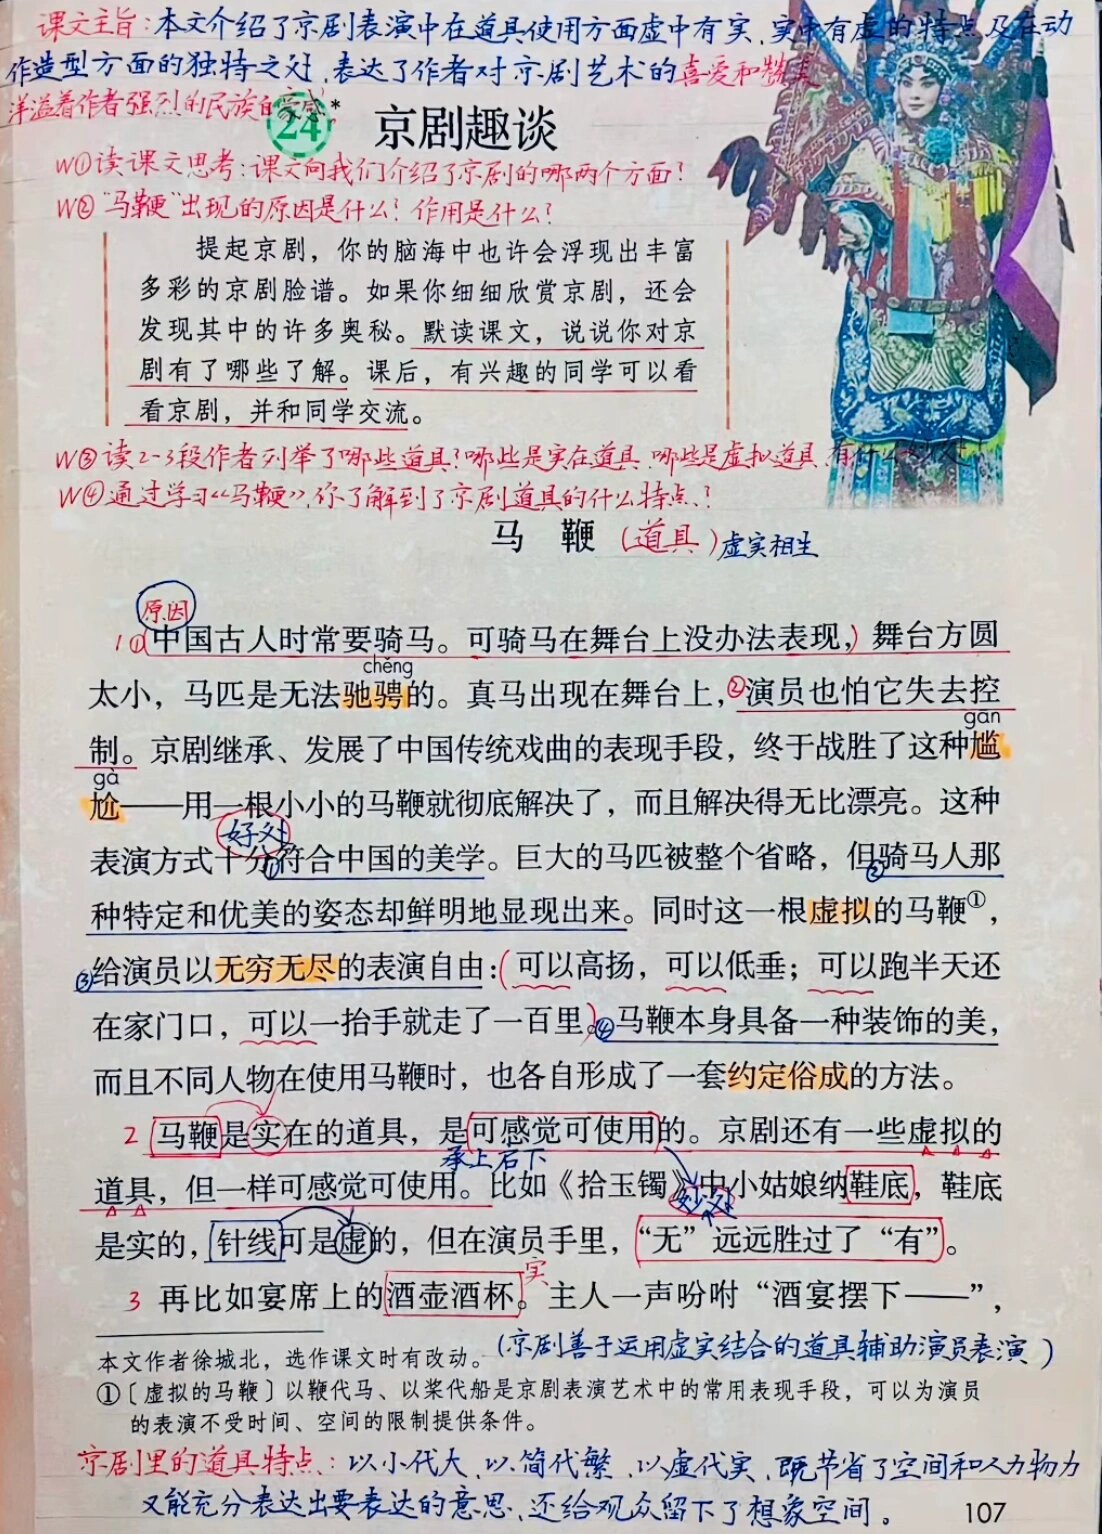 课文主旨:本文介绍了京剧表演中在道具使用方面虚中有实、实中有虚的特点及在动
作造型方面的独特之处,表达了作者对京剧艺术的喜爱和赞美
洋溢着作者强烈的民族自豪感。
24 京剧趣谈*
W①读课文思考:课文向我们介绍了京剧的哪两个方面?
W②“马鞭”出现的原因是什么?作用是什么?
提起京剧,你的脑海中也许会浮现出丰富
多彩的京剧脸谱。如果你细细欣赏京剧,还会
发现其中的许多奥秘。默读课文,说说你对京
剧有了哪些了解。课后,有兴趣的同学可以看
看京剧,并和同学交流。
W③读2-3段作者列举了哪些道具?哪些是实在道具、哪些是虚拟道具,有什么妙处?
W④通过学习《马鞭》,你了解到了京剧道具的什么特点?
马 鞭(道具)虚实相生
原因
1①(中国古人时常要骑马。可骑马在舞台上没办法表现,)舞台方圆
chěng
太小,马匹是无法驰骋的。真马出现在舞台上,②演员也怕它失去控
gān
制。京剧继承、发展了中国传统戏曲的表现手段,终于战胜了这种尴
gà
尬——用一根小小的马鞭就彻底解决了,而且解决得无比漂亮。这种
好处
表演方式十分①符合中国的美学。巨大的马匹被整个省略,但②骑马人那
种特定和优美的姿态却鲜明地显现出来。同时这一根虚拟的马鞭①,
③给演员以无穷无尽的表演自由:(可以高扬,可以低垂;可以跑半天还
在家门口,可以一抬手就走了一百里。)④马鞭本身具备一种装饰的美,
而且不同人物在使用马鞭时,也各自形成了一套约定俗成的方法。
2 马鞭是实在的道具,是可感觉可使用的。京剧还有一些虚拟的
承上启下
道具,但一样可感觉可使用。比如《拾玉镯》中小姑娘纳鞋底,鞋底
妙处
是实的,针线可是虚的,但在演员手里,“无”远远胜过了“有”。
实
3 再比如宴席上的酒壶酒杯。主人一声吩咐“酒宴摆下——”,
(京剧善于运用虚实结合的道具辅助演员表演)
本文作者徐城北,选作课文时有改动。
①〔虚拟的马鞭〕以鞭代马、以桨代船是京剧表演艺术中的常用表现手段,可以为演员
的表演不受时间、空间的限制提供条件。
京剧里的道具特点:以小代大、以简代繁、以虚代实,既节省了空间和人力物力
又能充分表达出要表达的意思,还给观众留下了想象空间。
107